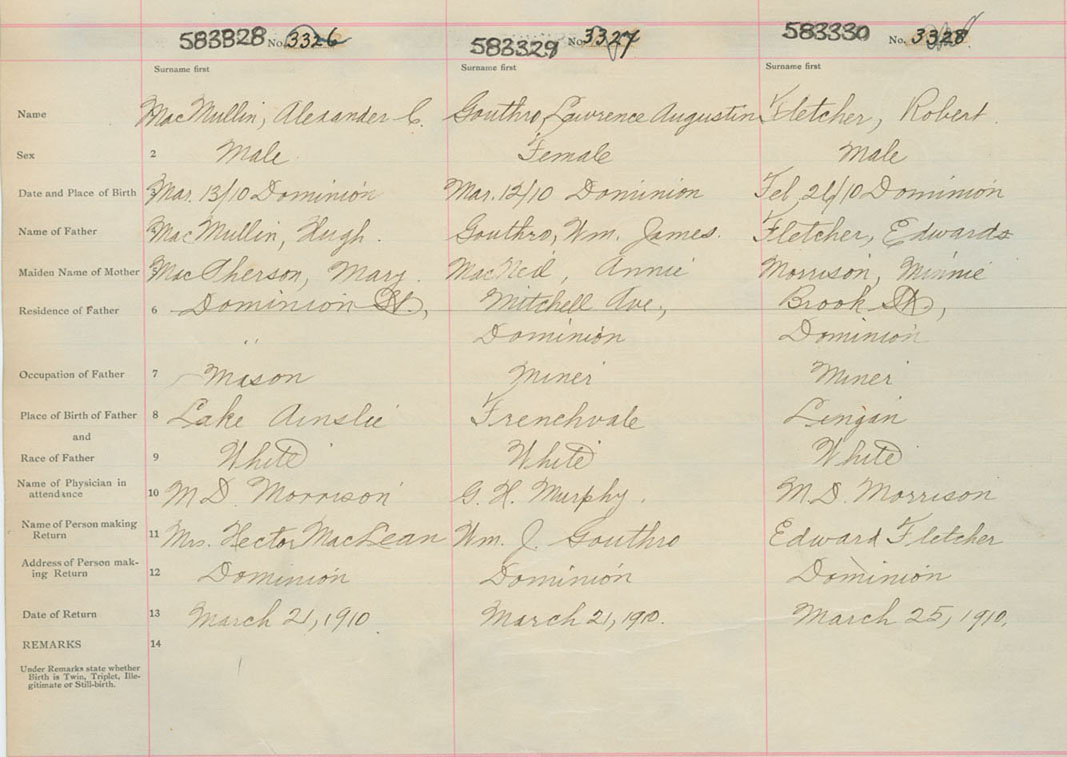 583328 No. 3326 583329 No. 3327 583330 No. 3328
Surname first Surname first Surname first
Name MacMullin, Alexander C. Gouthro, Lawrence Augustin Fletcher, Robert.
Sex 2 Male Female Male
Date and Place of Birth 3 Mar. 13/10 Dominion Mar. 12/10 Dominion Feb, 26/10 Dominion
Name of Father MacMullin, Hugh. Gouthro, Wm. James. Fletcher, Edwards
Maiden Name of Mother MacPherson, Mary MacNeil, Annie Morrison, Minnie
Residence of Father 6 Dominion St., Mitchell Ave., Brook St,
" Dominion Dominion
Occupation of Father 7 Mason Miner Miner
Place of Birth of Father 8 Lake Ainslie Frenchvale Lingan
and
Race of Father 9 White White White
Name of Physician in
attendance 10 M D. Morrison G. H. Murphy. M. D. Morrison
Name of Person making
Return 11 Mrs. Hector MacLean Wm. J. Gouthro Edward Fletcher
Address of Person mak-
ing Return 12 Dominion Dominion Dominion
Date of Return 13 March 21, 1910. March 21, 1910. March 25, 1910,
REMARKS 14
Under Remarks state whether
Birth is Twin, Triplet, Ille-
gitimate or Still-birth.